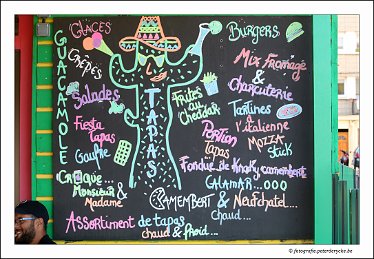 GLACES
Burgers
GUACAMOLE
Crêpes
Mix Fromage
&
charcuterie
Salades
Frites
au
Cheddar
Tartines
à
l'italienne
Fiesta
tapas
Portion
Tapas
Mozza
Stick
TAPAS
Gaufre
Fondue de
camembert
Croque...
Monsieur &
Madame
CALAMAR...
CAMEMBERT & Neufchatel...
chaud
chaud...
Assortiment de tapas
chaud & froid...
© fotografie.peterderuyte.be